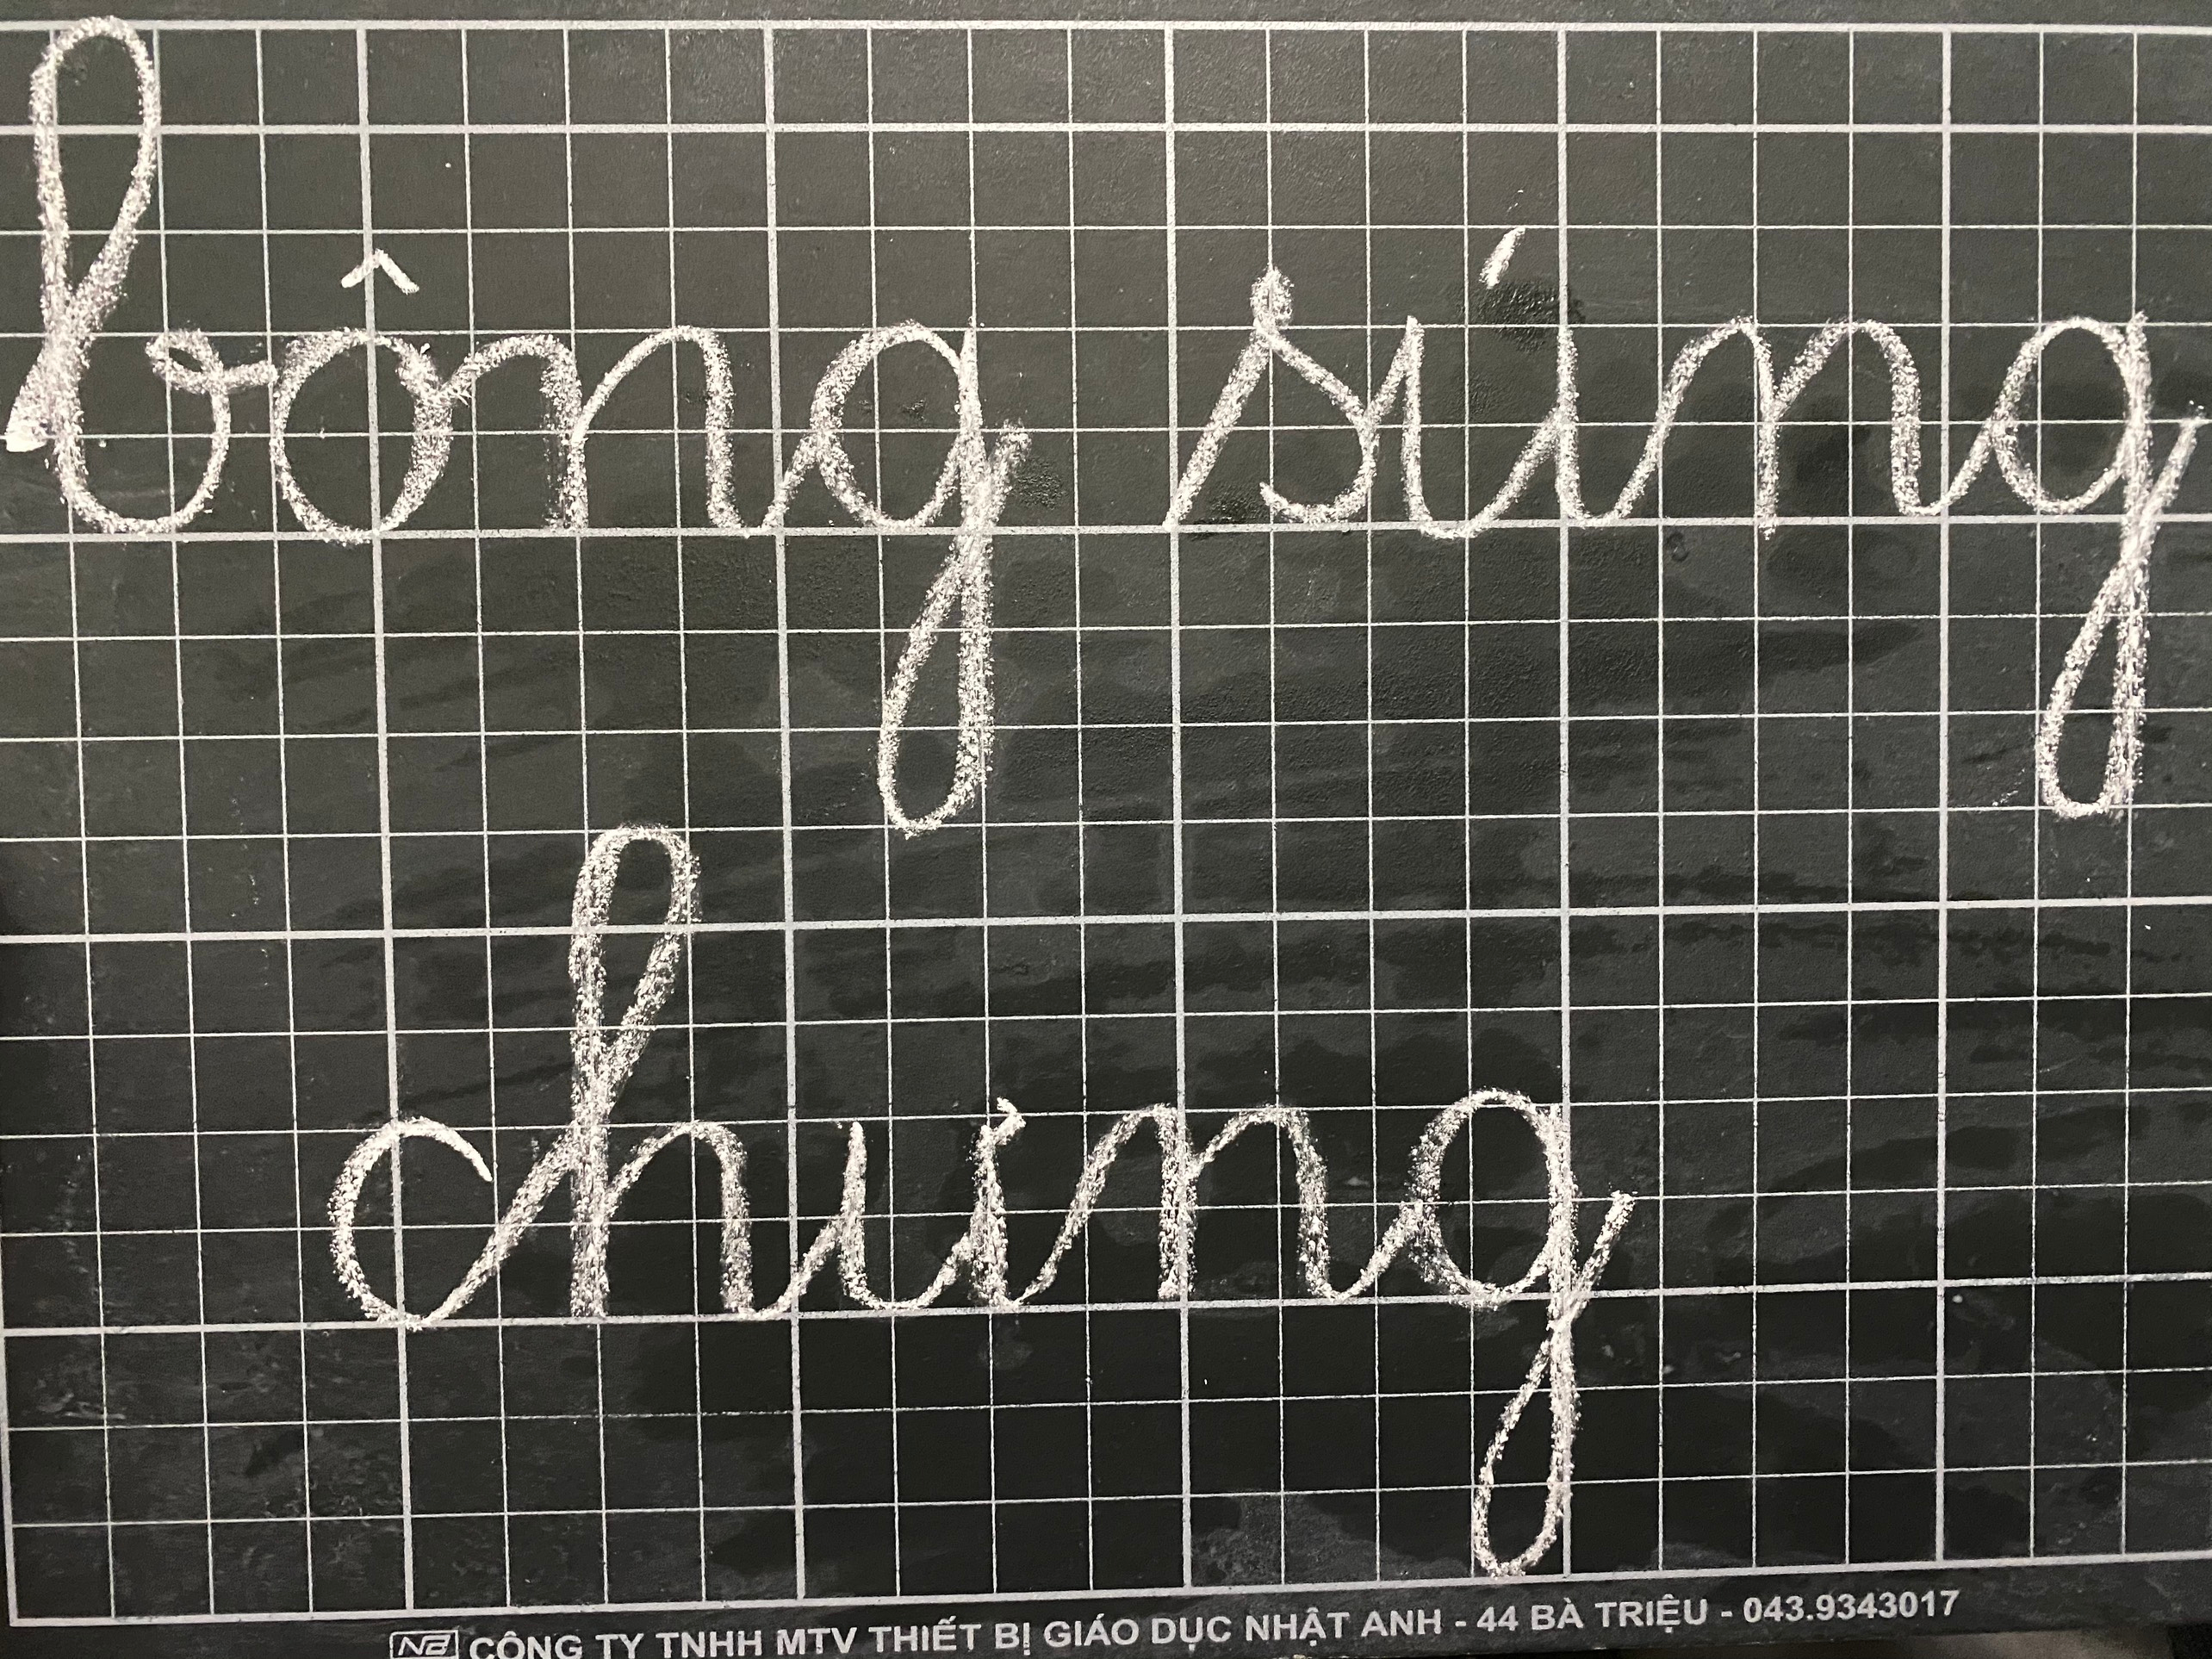 bông súng
chưng
NB CÔNG TY TNHH MTV THIẾT BỊ GIÁO DỤC NHẬT ANH - 44 BÀ TRIỆU - 043.9343017